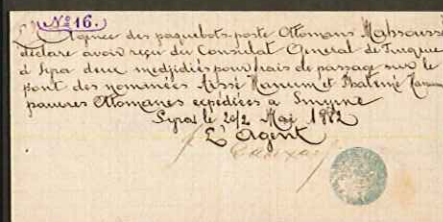 No 16.
L'Agence des paquebots-poste Ottomans Mahsoussé
déclare avoir reçu du Consulat General de Turquie
à Syra deux medjidiés pour frais de passage sur le
pont des nommées Aïssé Hanum et Fhatemé Hanum
pauvres Ottomanes expédiées à Smyrne
Syra le 20/2 Mai 1882
L'Agent